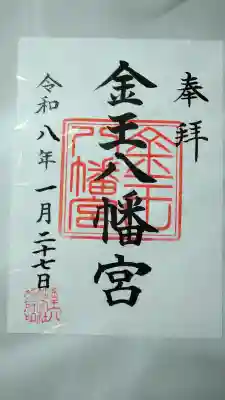 奉拝
金王八幡宮
令和八年一月二十七日
金王八幡宮